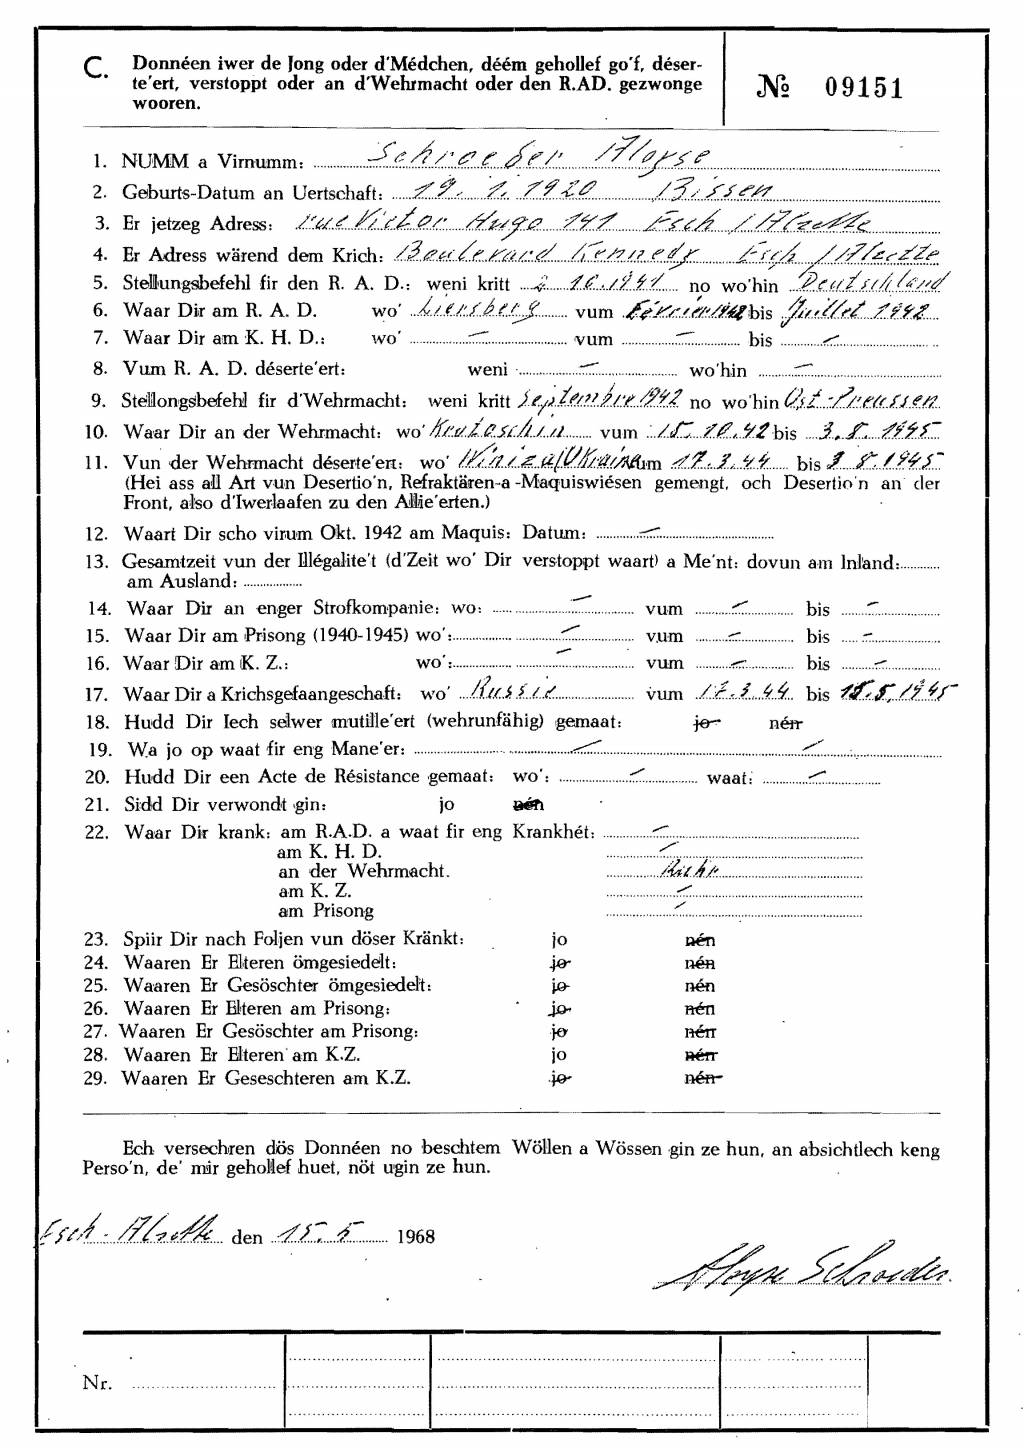 C. Donnéen iwer de Jong oder d'Médchen, déém gehollef go'f, déser-
te'ert, verstoppt oder an d'Wehrmacht oder den R.AD. gezwonge
wooren.
№ 09151
1. NUMM a Virnumm: Schroeder Aloyse
2. Geburts-Datum an Uertschaft: 19. 1. 1920 Bissen
3. Er jetzeg Adress: rue Victor Hugo 141 Esch / Alzette
4. Er Adress wärend dem Krich: Boulevard Kennedy Esch / Alzette
5. Stellungsbefehl fir den R. A. D.: weni kritt 2 10.1941 no wo'hin Deutschland
6. Waar Dir am R. A. D. wo' Liensberg vum Février 1942 bis Juillet 1942
7. Waar Dir am K. H. D.: wo' — vum — bis —
8. Vum R. A. D. déserte'ert: weni — wo'hin —
9. Stellongsbefehl fir d'Wehrmacht: weni kritt Septembre 1942 no wo'hin Ost-Preussen
10. Waar Dir an der Wehrmacht: wo' Krotoschin vum 15. 10. 42 bis 3. 8. 1945
11. Vun der Wehrmacht déserte'ert: wo' Winiza/Ukraine vum 17. 3. 44 bis 3 8. 1945
(Hei ass all Art vun Desertio'n, Refraktären-a -Maquiswiésen gemengt, och Desertio'n an der
Front, also d'Iwerlaafen zu den Allie'erten.)
12. Waart Dir scho virum Okt. 1942 am Maquis: Datum: —
13. Gesamtzeit vun der Illégalite't (d'Zeit wo' Dir verstoppt waart) a Me'nt: dovun am Inland:
am Ausland:
14. Waar Dir an enger Strofkompanie: wo: — vum — bis —
15. Waar Dir am Prisong (1940-1945) wo': — vum — bis —
16. Waar Dir am K. Z.: wo': — vum — bis —
17. Waar Dir a Krichsgefaangeschaft: wo' Russie vum 17. 3. 44. bis 15. 5. 1945
18. Hudd Dir Iech selwer mutille'ert (wehrunfähig) gemaat: jo nén
19. Wa jo op waat fir eng Mane'er: — —
20. Hudd Dir een Acte de Résistance gemaat: wo': — waat: —
21. Sidd Dir verwondt gin: jo nén
22. Waar Dir krank: am R.A.D. a waat fir eng Krankhét: —
am K. H. D. —
an der Wehrmacht. Ruhr
am K. Z. —
am Prisong —
23. Spiir Dir nach Foljen vun döser Kränkt: jo nén
24. Waaren Er Elteren ömgesiedelt: jo nén
25. Waaren Er Gesöschter ömgesiedelt: jo nén
26. Waaren Er Elteren am Prisong: jo nén
27. Waaren Er Gesöschter am Prisong: jo nén
28. Waaren Er Elteren am K.Z. jo nén
29. Waaren Er Geseschteren am K.Z. jo nén
Ech versechren dös Donnéen no beschtem Wöllen a Wössen gin ze hun, an absichtlech keng
Perso'n, de' mir gehollef huet, nöt ugin ze hun.
Esch - Alzette den 15. 5 1968
Aloyse Schroeder
Nr.